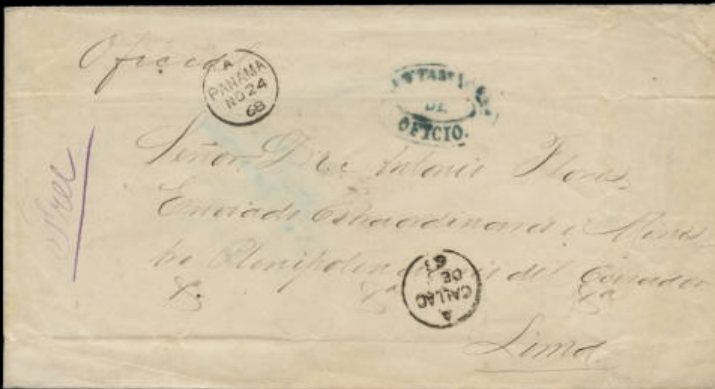 Oficial
A
PANAMA
NO 24
68
DE
OFICIO.
Free
Señor Dr Antonio Flores,
Enviado Extraordinario i Minis
tro Plenipoten del Ecuador
&. &a &a
A
CALLAO
DE
Lima